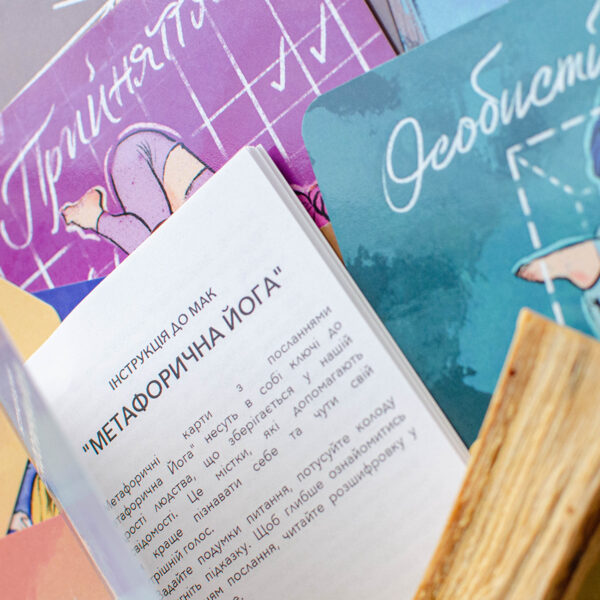 Прийняття
Особисті
ІНСТРУКЦІЯ ДО МАК
"МЕТАФОРИЧНА ЙОГА"
Метафоричні карти з посланнями
тафорична Йога" несуть в собі ключі до
рості людства, що зберігається у нашій
відомості. Це містки, які допомагають
краще пізнавати себе та чути свій
рішній голос.
Задайте подумки питання, потусуйте колоду
гніть підказку. Щоб глибше ознайомитись
ням послання, читайте розшифровку у